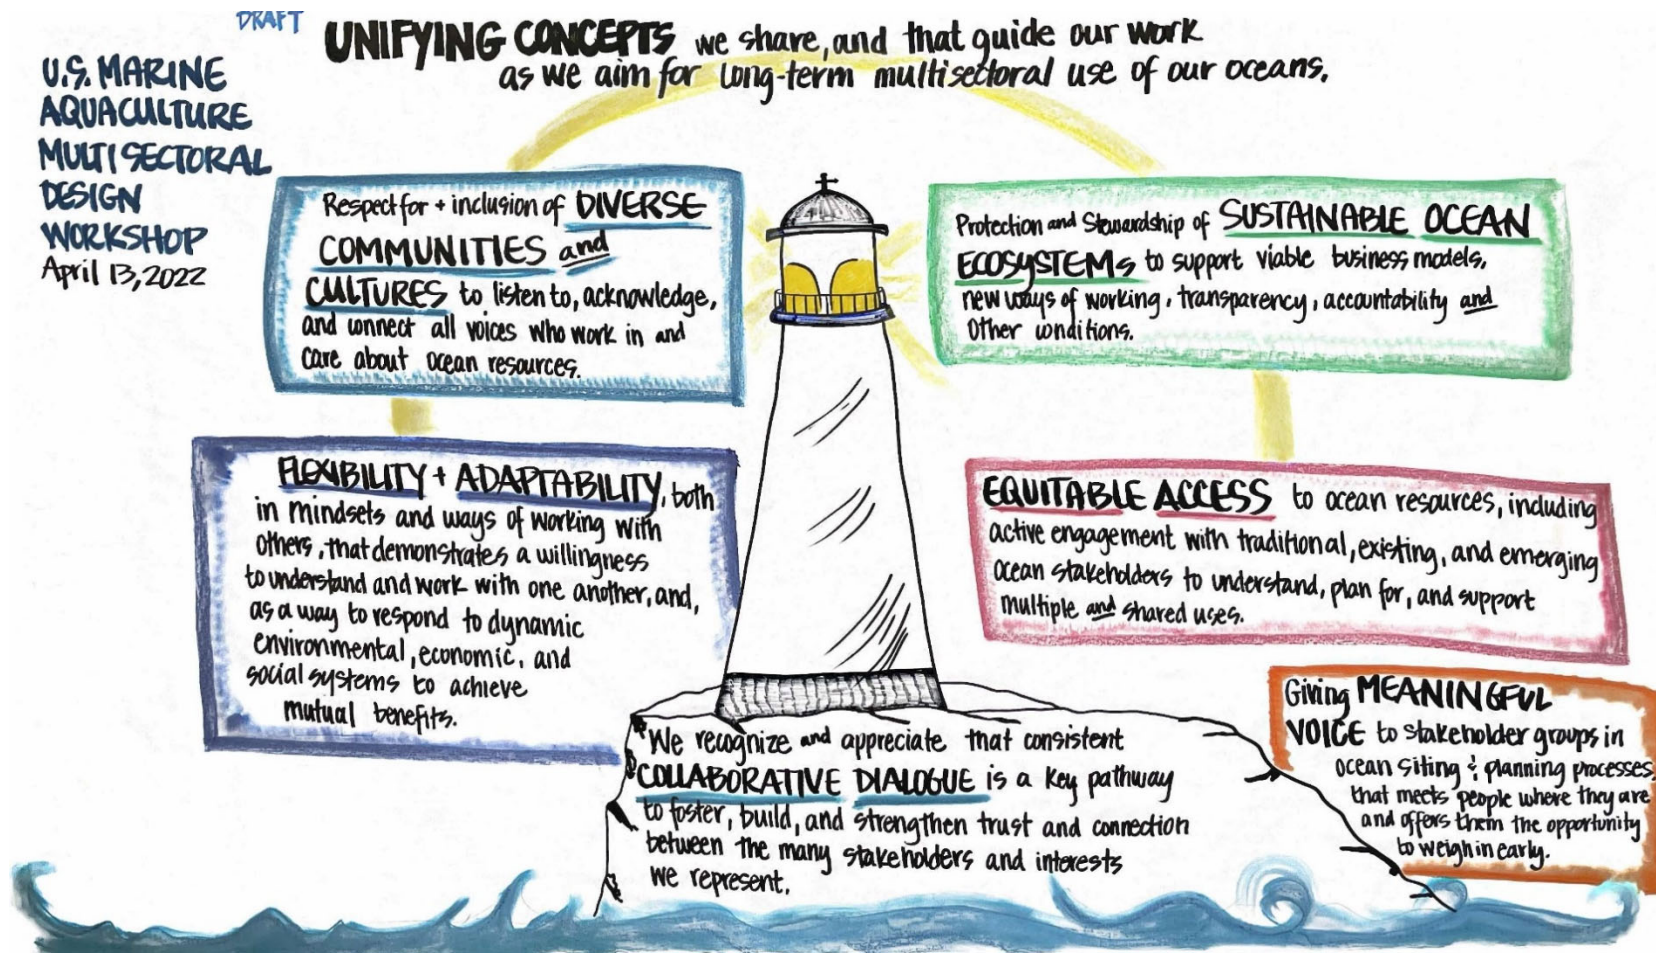 DRAFT
UNIFYING CONCEPTS we share, and that guide our work
as we aim for long-term multisectoral use of our oceans.
U.S. MARINE
AQUACULTURE
MULTISECTORAL
DESIGN
WORKSHOP
April 13, 2022
Respect for + inclusion of DIVERSE
COMMUNITIES and
CULTURES to listen to, acknowledge,
and connect all voices who work in and
care about ocean resources.
Protection and Stewardship of SUSTAINABLE OCEAN
ECOSYSTEMS to support viable business models,
new ways of working, transparency, accountability and
other conditions.
FLEXIBILITY + ADAPTABILITY, both
in mindsets and ways of working with
others, that demonstrates a willingness
to understand and work with one another, and,
as a way to respond to dynamic
environmental, economic, and
social systems to achieve
mutual benefits.
EQUITABLE ACCESS to ocean resources, including
active engagement with traditional, existing, and emerging
ocean stakeholders to understand, plan for, and support
multiple and shared uses.
Giving MEANINGFUL
VOICE to stakeholder groups in
ocean siting & planning processes
that meets people where they are
and offers them the opportunity
to weigh in early.
We recognize and appreciate that consistent
COLLABORATIVE DIALOGUE is a key pathway
to foster, build, and strengthen trust and connection
between the many stakeholders and interests
we represent.